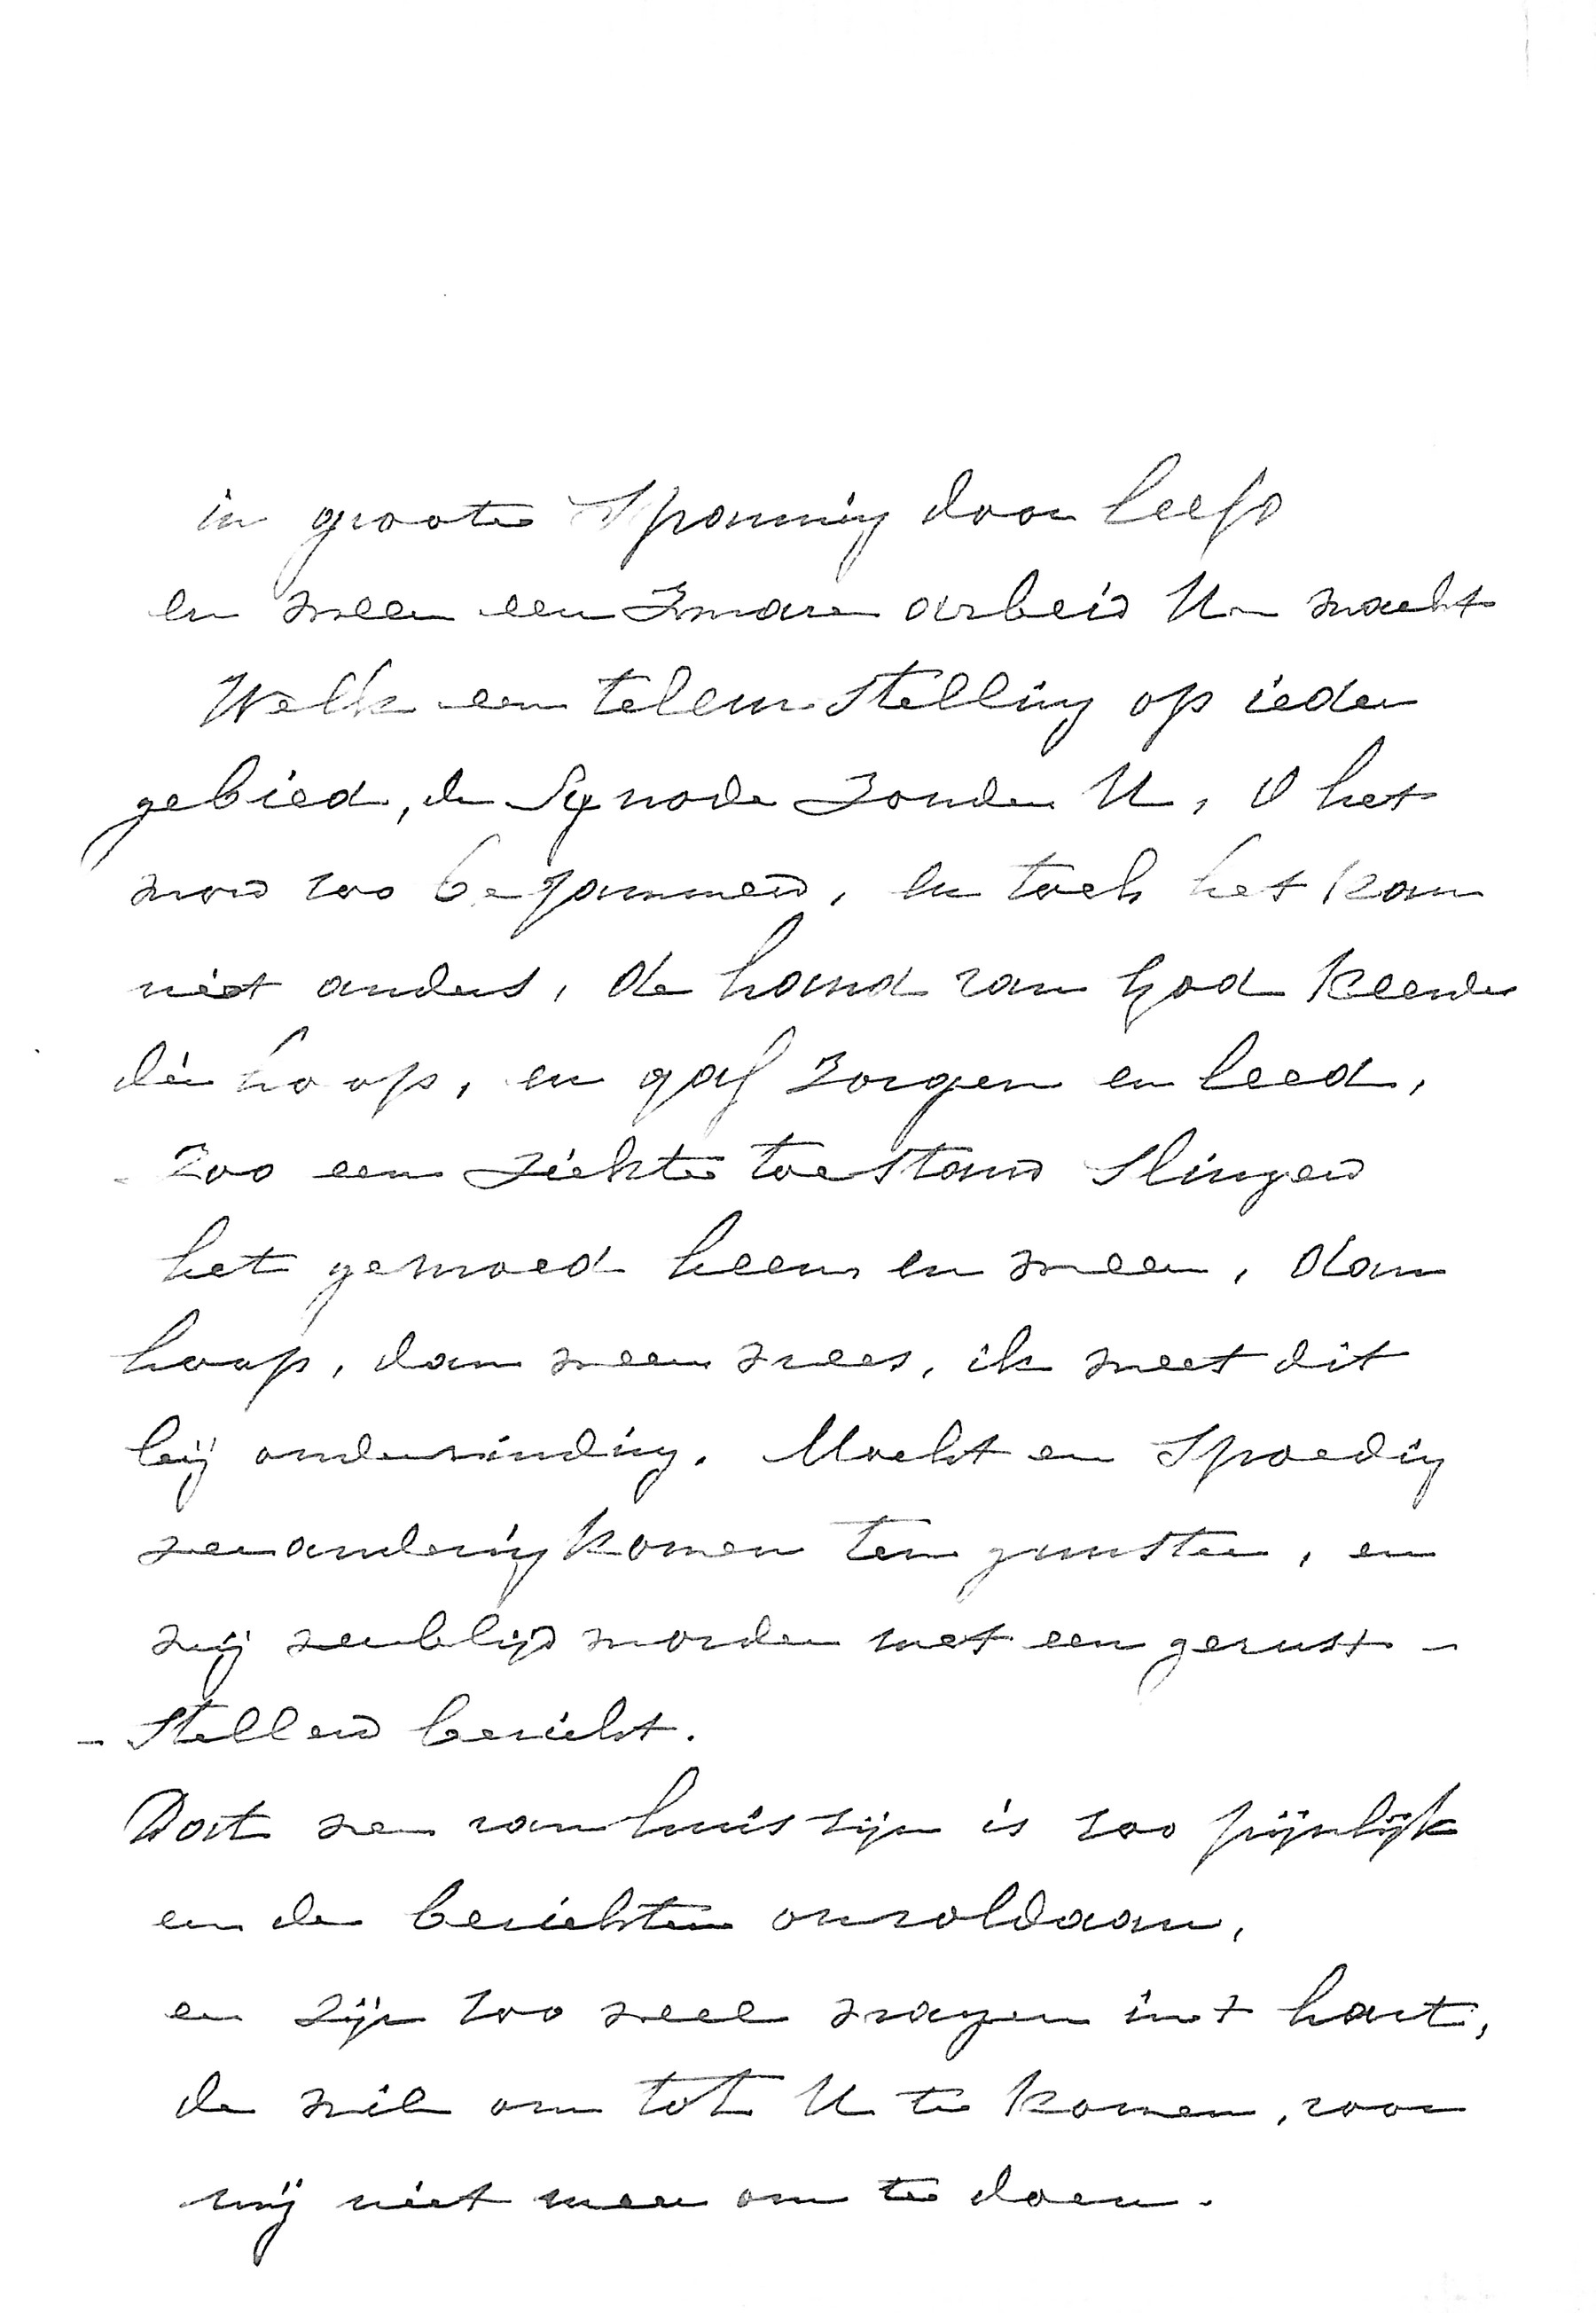 in groote spanning door leefd
en weer een zware arbeid U wacht
Welk een teleur stelling op ieder
gebied, de Synode zonder U, O het
word zoo bejammerd, en toch het kan
niet anders, de hand van God keerde
die hoop, en gaf zorgen en leed,
Zoo een ziekte toestand slingerd
het gemoed heen en weer, dan
hoop, dan weer vrees, ik weet dit
bij ondervinding. Mocht er spoedig
verandering komen ten gunsten, en
wij verblijd worden met een gerust -
- stellend bericht.
Dat ver van huis zijn is zoo pijnlijk
en de berichten onvoldaan,
er zijn zoo veel vragen in't hart,
de wil om tot U te komen, voor
mij niet meer om te doen.